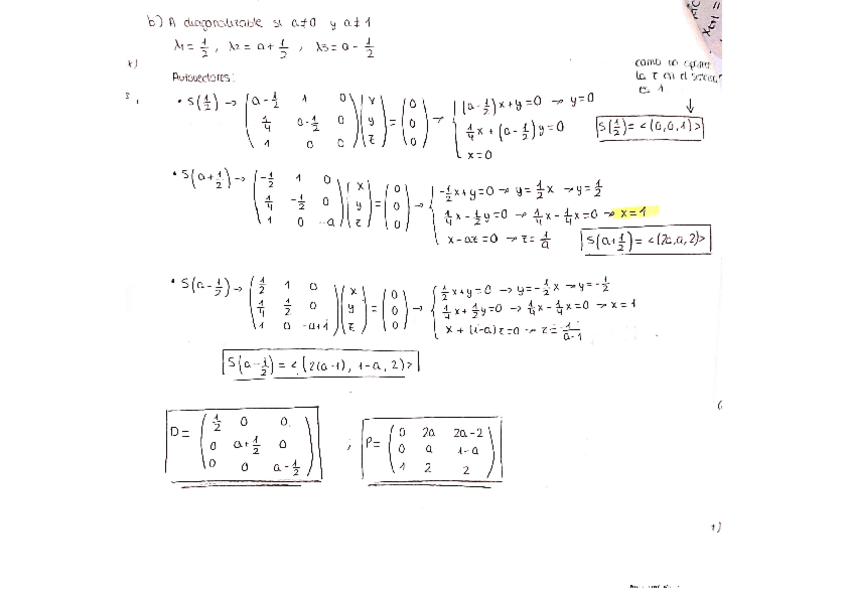 b) A diagonalizable si a≠0 y a≠1
λ1 = 1/2 , λ2 = a + 1/2 , λ3 = a - 1/2
Autovectores:
como un
la z en el
es 1
• S(1/2) → (a-1/2 1 0; 1/4 a-1/2 0; 1 0 0) (x; y; z) = (0; 0; 0) → { (a-1/2)x+y=0 → y=0
1/4 x + (a-1/2)y=0
x=0
S(1/2) = <(0,0,1)>
• S(a+1/2) → (-1/2 1 0; 1/4 -1/2 0; 1 0 -a) (x; y; z) = (0; 0; 0) → { -1/2 x+y=0 → y=1/2 x → y=1/2
1/4 x - 1/2 y=0 → 1/4 x - 1/4 x=0 → x=1
x-az=0 → z=1/a
S(a+1/2) = <(2a,a,2)>
• S(a-1/2) → (1/2 1 0; 1/4 1/2 0; 1 0 -a+1) (x; y; z) = (0; 0; 0) → { 1/2 x+y=0 → y=-1/2 x → y=-1/2
1/4 x + 1/2 y=0 → 1/4 x - 1/4 x=0 → x=1
x + (1-a)z=0 → z= 1/a-1
S(a-1/2) = <(2(a-1), 1-a, 2)>
D = (1/2 0 0; 0 a+1/2 0; 0 0 a-1/2) ; P = (0 2a 2a-2; 0 a 1-a; 1 2 2)